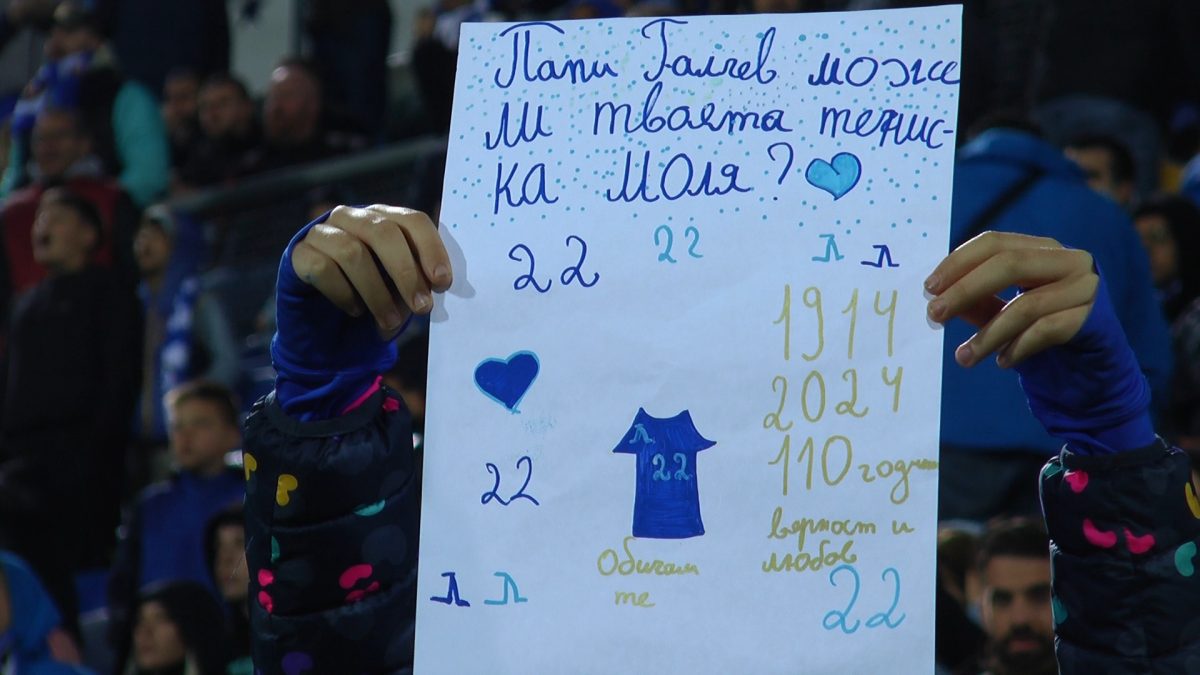 Папи Галчев може
ли тваята тенис-
ка Моля?
22
22
Л Л
1914
2024
110 години
верност и
любов
22
22
Л
22
Обичам
те
Л Л